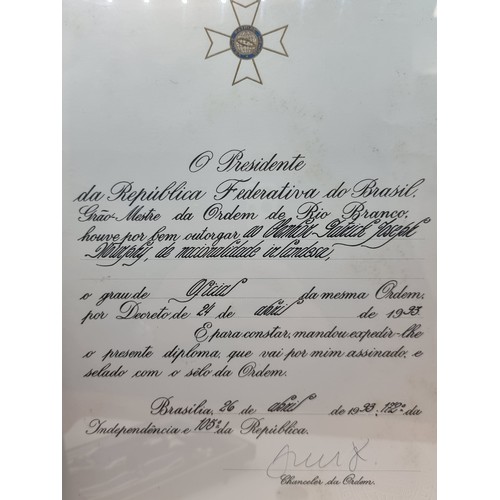 O Presidente
da República Federativa do Brasil,
Grão-Mestre da Ordem de Rio Branco,
houve por bem outorgar ao Senhor Patrick Joseph
Murphy, de nacionalidade irlandesa,
o grau de Oficial da mesma Ordem,
por Decreto, de 24 de abril de 1993
E, para constar, mandou expedir-lhe
o presente diploma, que vai por mim assinado, e
selado com o sêlo da Ordem.
Brasília, 26 de abril de 1993, 172º da
Independência e 105º da República.
Chanceler da Ordem.